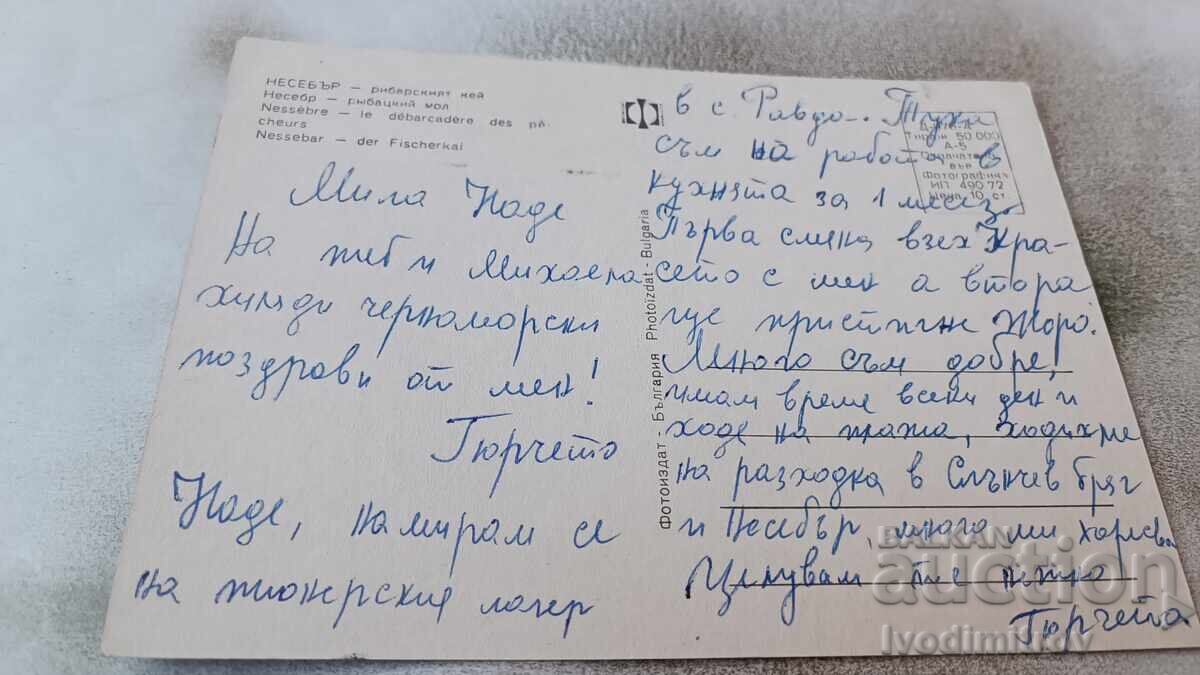 НЕСЕБЪР — рибарският кей
Несебр — рыбацкий мол
Nessèbre — le débarcadère des pê-
cheurs
Nessebar — der Fischerkai
Мила Наде
На теб и Михаела
хиляди черноморски
поздрави от мен!
Гюрчето
Наде, намирам се
на пионерския лагер
Фотоиздат - България Photoizdat - Bulgaria
в с. Равда. Тука
съм на работа в
кухнята за 1 месец.
Първа смяна взех Кра-
сето с мен а втора
ще пристигне Жоро.
Много съм добре,
имам време всеки ден и
ходе на плажа, ходихме
на разходка в Слънчев бряг
и Несебър, много ми харесва
Целувам те
Гюрчето
Тираж 50 000
А-5
Фотографичн
ИП 490 72
Цена 10 ст
BALKAN
auction
Ivodimitrov